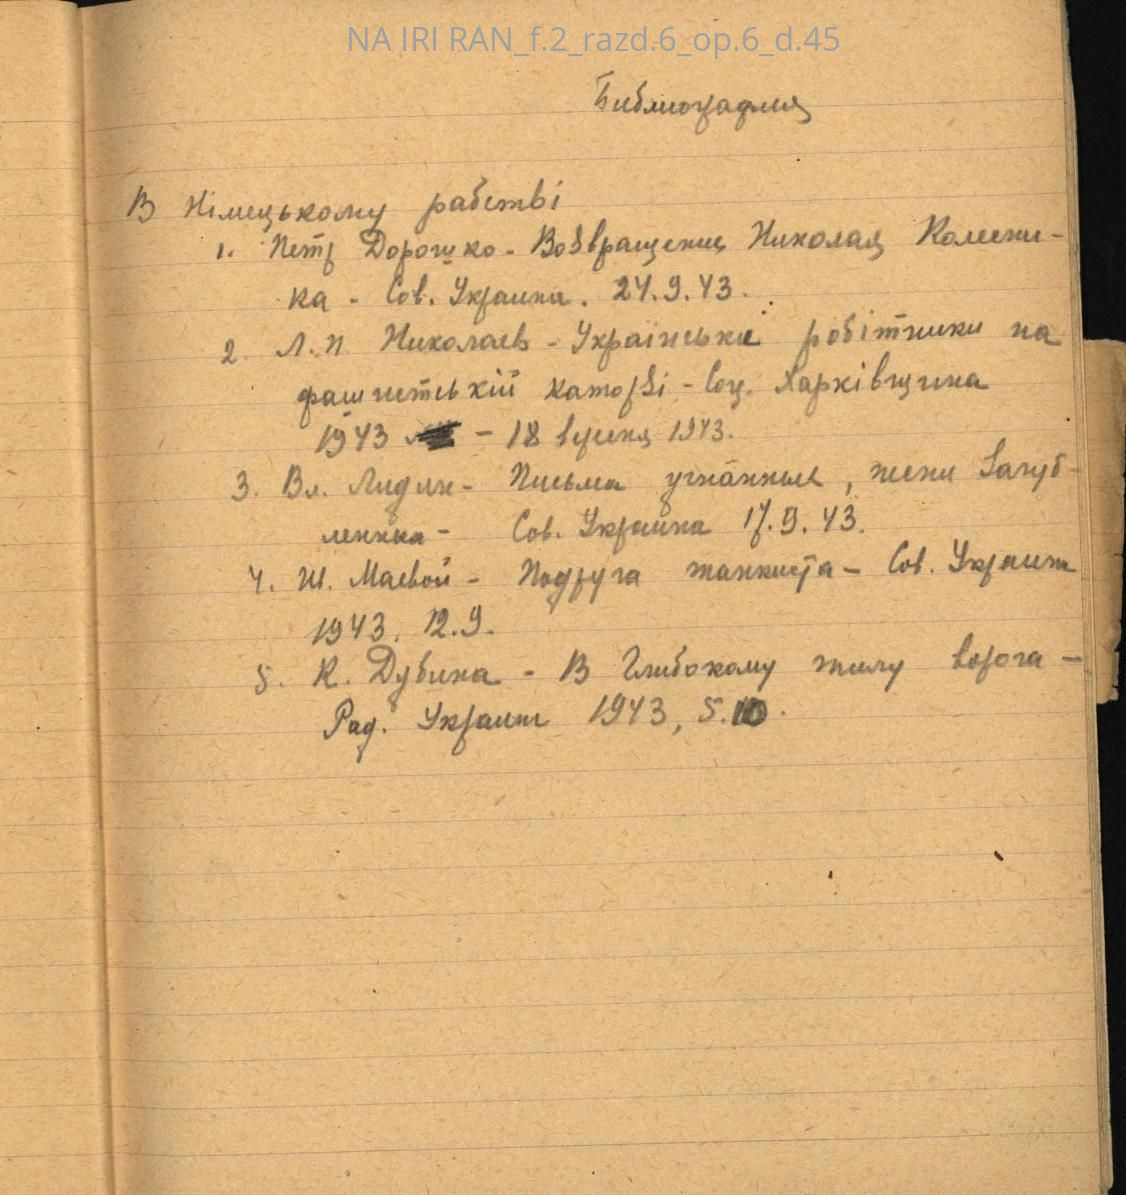 NA IRI RAN_f.2_razd.6_op.6_d.45
Библиография
В Німецькому рабстві
1. Петр Дорошко - Возвращение Николая Колесни-
ка - Сов. Украина. 24.9.43.
2 Л.П Николаев - Українські робітники на
фашистській каторзі - Соц. Харківщина
1943 - 18 вересня 1943.
3. Вл. Лидин - Письма угнанных,
- Сов. Украина 17.9.43.
4. Ш. Маевой - Подруга танкиста - Сов. Украина
1943. 12.9.
5. К. Дубина - В глибокому тилу ворога -
Рад. Украина 1943, 5.10.